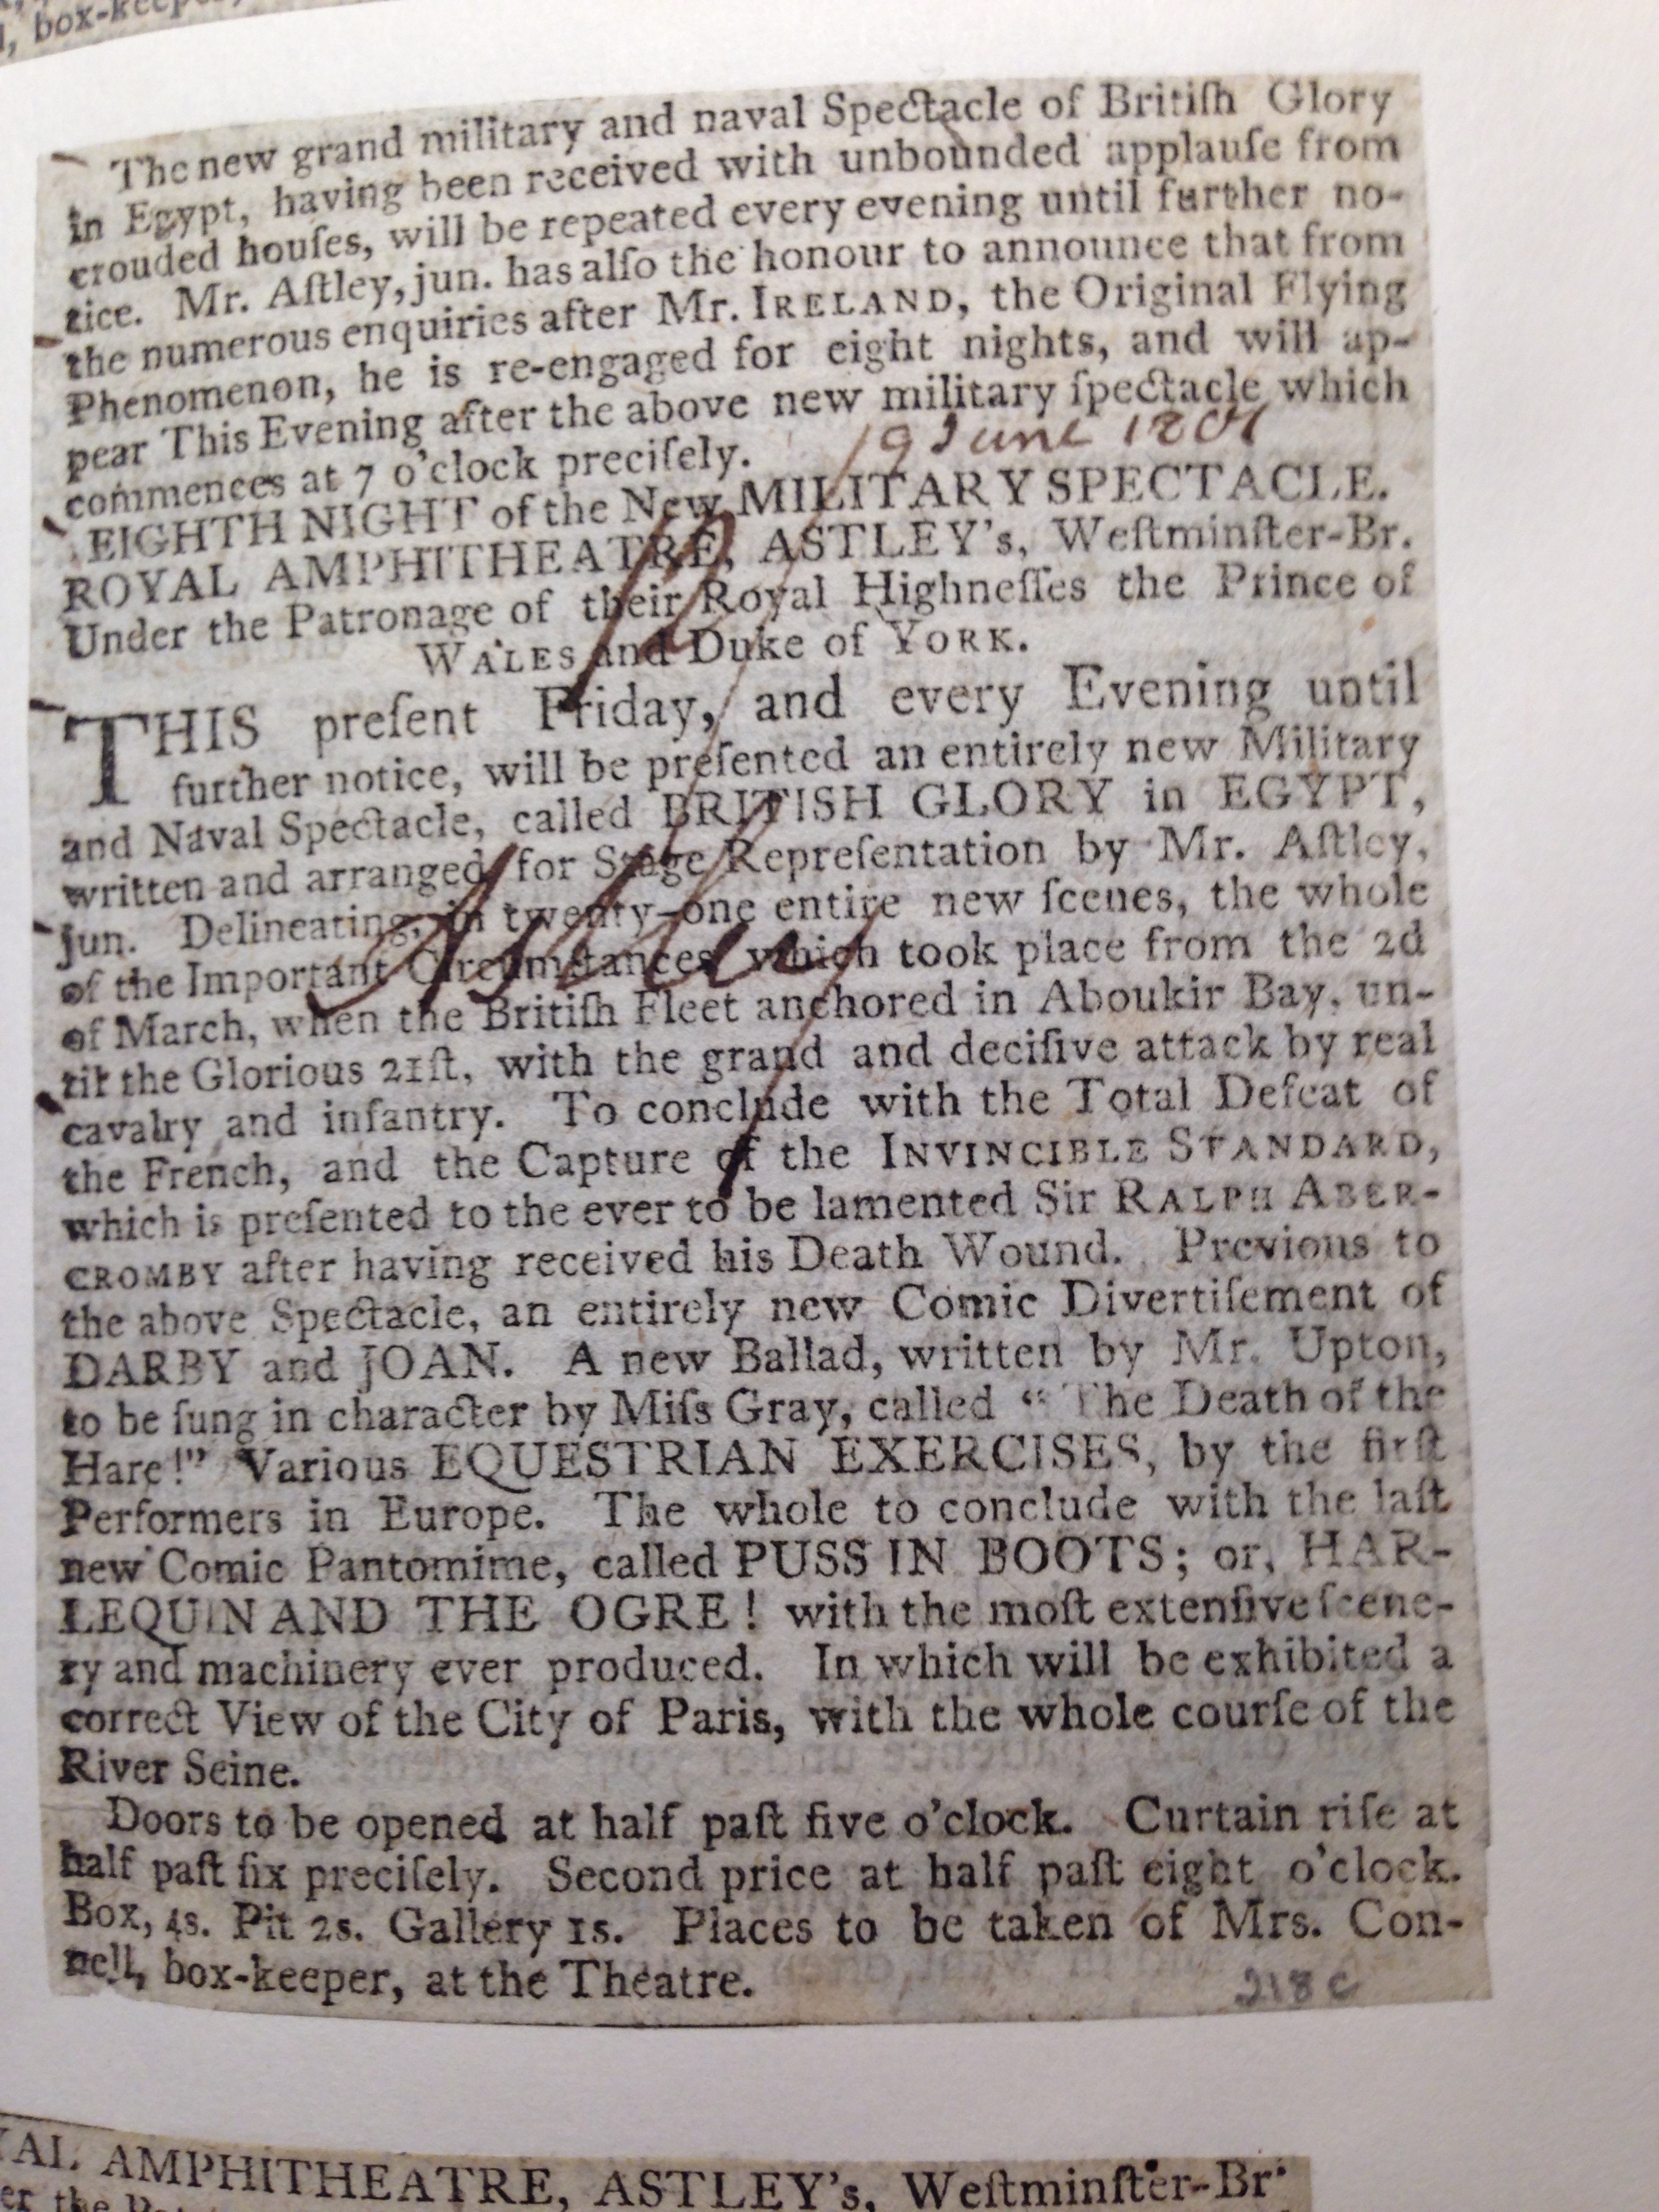 box-keeper,
The new grand military and naval Spectacle of Britiſh Glory
in Egypt, having been received with unbounded applauſe from
crouded houſes, will be repeated every evening until further no-
tice. Mr. Aſtley, jun. has alſo the honour to announce that from
the numerous enquiries after Mr. IRELAND, the Original Flying
Phenomenon, he is re-engaged for eight nights, and will ap-
pear This Evening after the above new military ſpectacle which
commences at 7 o'clock preciſely.
19 June 1801
EIGHTH NIGHT of the New MILITARY SPECTACLE.
ROYAL AMPHITHEATRE, ASTLEY's, Weſtminſter-Br.
Under the Patronage of their Royal Highneſſes the Prince of
WALES and Duke of YORK.
THIS preſent Friday, and every Evening until
further notice, will be preſented an entirely new Military
and Naval Spectacle, called BRITISH GLORY in EGYPT,
written and arranged for Stage Repreſentation by Mr. Aſtley,
jun. Delineating, in twenty-one entire new ſcenes, the whole
of the Important Circumſtances which took place from the 2d
of March, when the Britiſh Fleet anchored in Aboukir Bay, un-
til the Glorious 21ſt, with the grand and deciſive attack by real
cavalry and infantry. To conclude with the Total Defeat of
the French, and the Capture of the INVINCIBLE STANDARD,
which is preſented to the ever to be lamented Sir RALPH ABER-
CROMBY after having received his Death Wound. Previous to
the above Spectacle, an entirely new Comic Divertiſement of
DARBY and JOAN. A new Ballad, written by Mr. Upton,
to be ſung in character by Miſs Gray, called "The Death of the
Hare!" Various EQUESTRIAN EXERCISES, by the firſt
Performers in Europe. The whole to conclude with the laſt
new Comic Pantomime, called PUSS IN BOOTS; or, HAR-
LEQUIN AND THE OGRE! with the moſt extenſive ſcene-
ry and machinery ever produced. In which will be exhibited a
correct View of the City of Paris, with the whole courſe of the
River Seine.
Doors to be opened at half paſt five o'clock. Curtain riſe at
half paſt ſix preciſely. Second price at half paſt eight o'clock.
Box, 4s. Pit 2s. Gallery 1s. Places to be taken of Mrs. Con-
nell, box-keeper, at the Theatre.
218 c
YAL AMPHITHEATRE, ASTLEY's, Weſtminſter-Br
er the